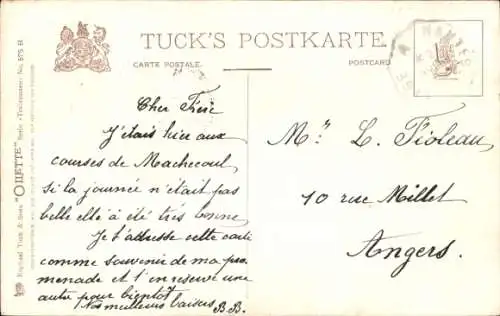 TUCK'S POSTKARTE
CARTE POSTALE.
POSTCARD
Raphael Tuck & Sons' "OILETTE" Serie
Cher Fésic
J'étais hier aux
courses de Machecoul
si la journée n'était pas
belle elle a été très bonne
Je t'adresse cette carte
comme souvenir de ma pro
menade et t'en réserve une
autre pour bientôt
Nos meilleurs baisers B.B.
Mr L. Fioleau
10 rue Millet
Angers.